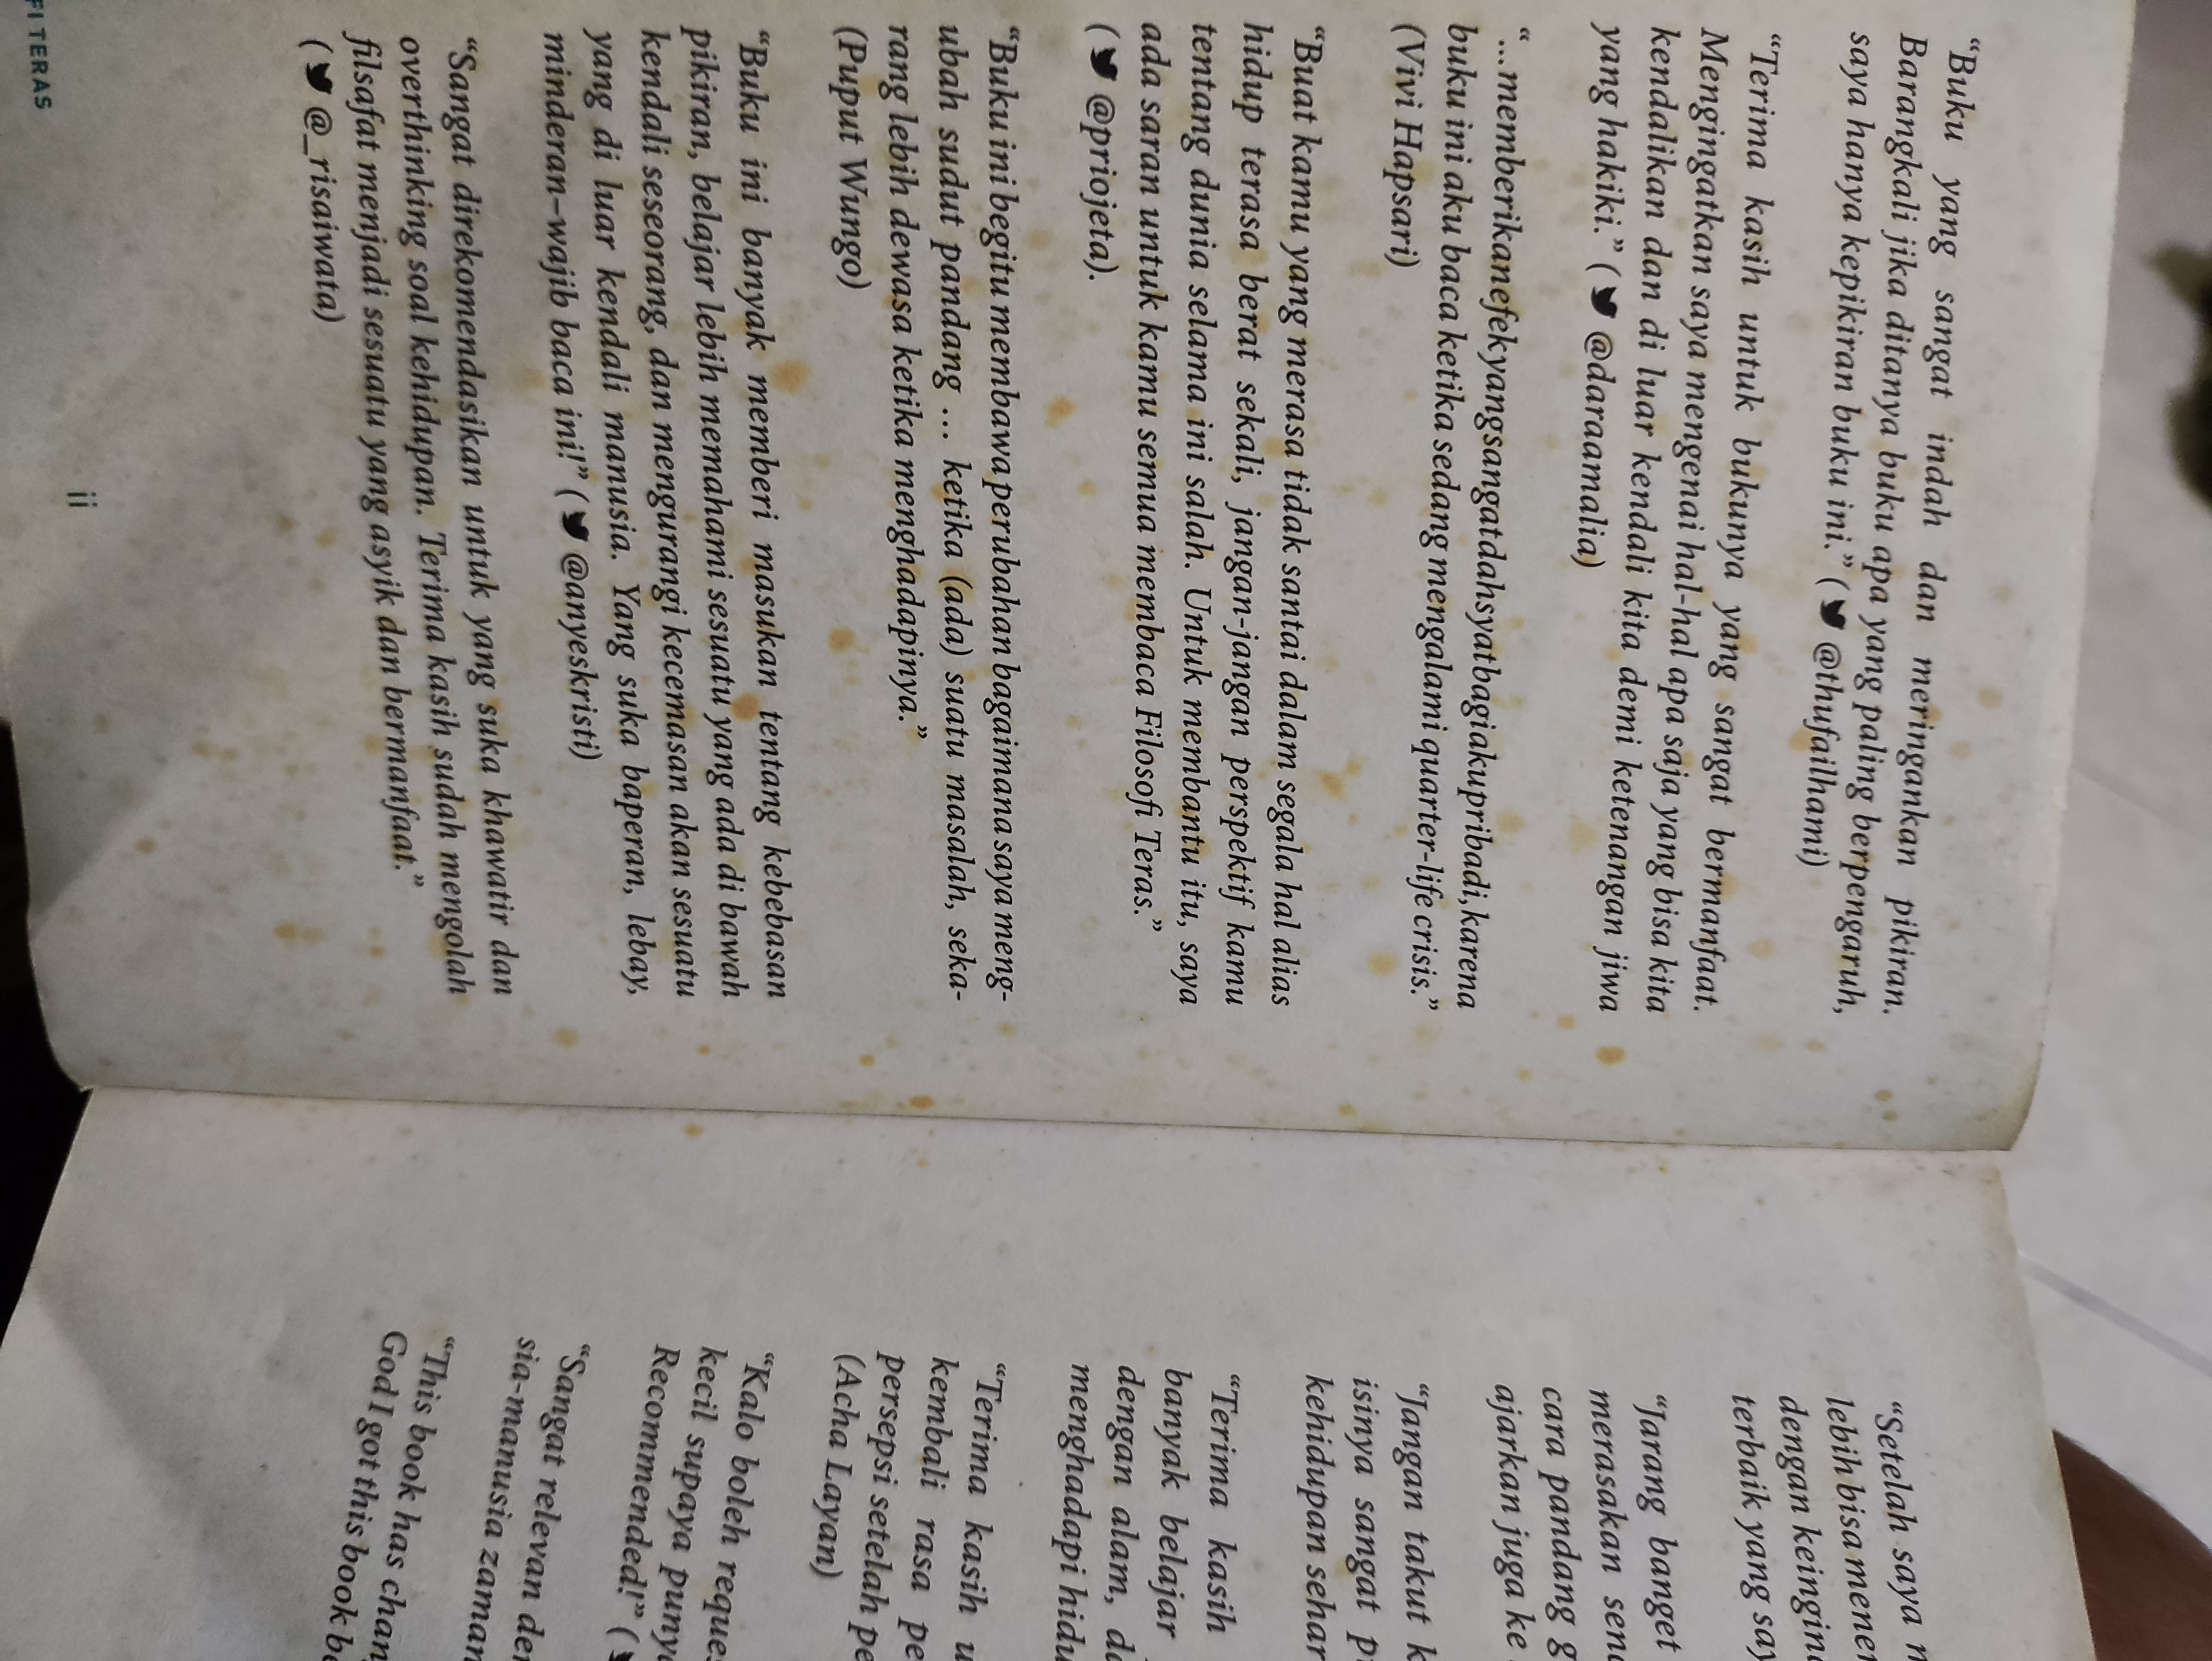 “Buku yang sangat indah dan meringankan pikiran.
Barangkali jika ditanya buku apa yang paling berpengaruh,
saya hanya kepikiran buku ini.” ( @thufailhami)
“Terima kasih untuk bukunya yang sangat bermanfaat.
Mengingatkan saya mengenai hal-hal apa saja yang bisa kita
kendalikan dan di luar kendali kita demi ketenangan jiwa
yang hakiki.” ( @daraamalia)
“...memberikan efek yang sangat dahsyat bagi aku pribadi, karena
buku ini aku baca ketika sedang mengalami quarter-life crisis.”
(Vivi Hapsari)
“Buat kamu yang merasa tidak santai dalam segala hal alias
hidup terasa berat sekali, jangan-jangan perspektif kamu
tentang dunia selama ini salah. Untuk membantu itu, saya
ada saran untuk kamu semua membaca Filosofi Teras.”
( @priojeta).
“Buku ini begitu membawa perubahan bagaimana saya meng-
ubah sudut pandang ... ketika (ada) suatu masalah, seka-
rang lebih dewasa ketika menghadapinya.”
(Puput Wungo)
“Buku ini banyak memberi masukan tentang kebebasan
pikiran, belajar lebih memahami sesuatu yang ada di bawah
kendali seseorang, dan mengurangi kecemasan akan sesuatu
yang di luar kendali manusia. Yang suka baperan, lebay,
minderan–wajib baca ini!” ( @anyeskristi)
“Sangat direkomendasikan untuk yang suka khawatir dan
overthinking soal kehidupan. Terima kasih sudah mengolah
filsafat menjadi sesuatu yang asyik dan bermanfaat.”
( @_risaiwata)
ii
FI TERAS
“Setelah saya
lebih bisa
dengan
terbaik yang
“Jarang banget
merasakan
cara pandang
ajarkan juga ke
“Jangan takut
isinya sangat
kehidupan
“Terima kasih
banyak belajar
dengan alam,
menghadapi
“Terima kasih
kembali rasa
persepsi setelah
(Acha Layan)
“Kalo boleh
kecil supaya
Recommended!” (
“Sangat relevan
sia-manusia zaman
“This book has
God I got this book